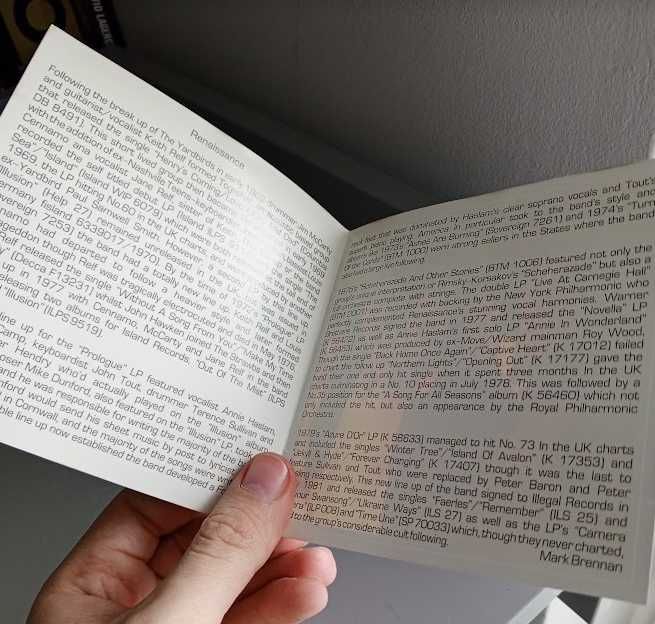 VID LAGERC
Renaissance
Following the break up of The Yardbirds in early 1968 drummer Jim McCarty
and guitarist/vocalist Keith Relf formed
that released the single "Henry's Coming
DB 8491). This short lived group then
with the addition of ex-Nashville Teens
Cennamo and vocalist Jane Relf
recorded the self titled debut LP
Sea"/"Island" (Island WIP 6079) which
1969, the LP hitting No.60 in the UK charts
ex-Yardbird Paul Samwell Smith. However a
Illusion" (Help 27) remained unreleased in the
ermany (Island 6339017/1970). By the
overeign 7253) the band had a totally new line up
namo had departed to follow
ageddon though Relf was tragically
Relf released the single "Without A Song From You"/"Make My Time
(Decca F13231) whilst John Hawken joined The Strawbs and then
up in 1977 with Cennamo, McCarty and Jane Relf in the band
leasing two albums for Island Records "Out Of The Mist" (ILPS
"Illusion" (ILPS 9519).
line up for the "Prologue" LP featured vocalist Annie Haslam,
amp, keyboardist John Tout, drummer Terence Sullivan and
er Hendry who'd actually played on the "Illusion" album
oser Mike Dunford, also featured on the "Illusion" LP took
nd he was responsible for writing the majority of the band's
nford would send his sheet music by post to lyricist
d in Cornwall, and the majority of the songs were
ble line up now established the band developed a
rock feel that was dominated by Haslam's clear soprano vocals and Tout's
piano playing. America in particular took to the band's style and
albums like 1973's "Ashes Are Burning" (Sovereign 7261) and 1974's "Turn
Of The Cards" (BTM 1000) were strong sellers in the States where the band
had a large live following.
1975's "Scheherazade And Other Stories" (BTM 1006) featured not only the
group's unique interpretation of Rimsky-Korsakov's "Scheherazade" but also a
with strings. The double LP "Live At Carnegie Hall"
(BTM 2001) was recorded with backing by the New York Philharmonic who
perfectly complemented Renaissance's stunning vocal harmonies. Warner
Brothers Records signed the band in 1977 and released the "Novella" LP
(K 56422) as well as Annie Haslam's first solo LP "Annie In Wonderland"
(K 56453) which was produced by ex-Move/Wizard mainman Roy Wood,
though the single "Back Home Once Again"/"Captive Heart" (K 17012) failed
to chart the follow up "Northern Lights"/"Opening Out" (K 17177) gave the
band their one and only hit single when it spent three months in the UK
charts culminating in a No. 10 placing in July 1978. This was followed by a
No.35 position for the "A Song For All Seasons" album (K 56460) which not
only included the hit, but also an appearance by the Royal Philharmonic
Orchestra.
1979's "Azure D'Or" LP (K 56633) managed to hit No. 73 in the UK charts
and included the singles "Winter Tree"/"Island Of Avalon" (K 17353) and
"Jekyll & Hyde"/"Forever Changing" (K 17407) though it was the last to
feature Sullivan and Tout who were replaced by Peter Baron and Peter
Gosling respectively. This new line up of the band signed to Illegal Records in
1981 and released the singles "Faeries"/"Remember" (ILS 25) and
"Bonjour Swansong"/"Ukraine Ways" (ILS 27) as well as the LP's "Camera
Camera" (ILP 008) and "Time Line" (SP 70033) which, though they never charted,
to the group's considerable cult following.
Mark Brennan